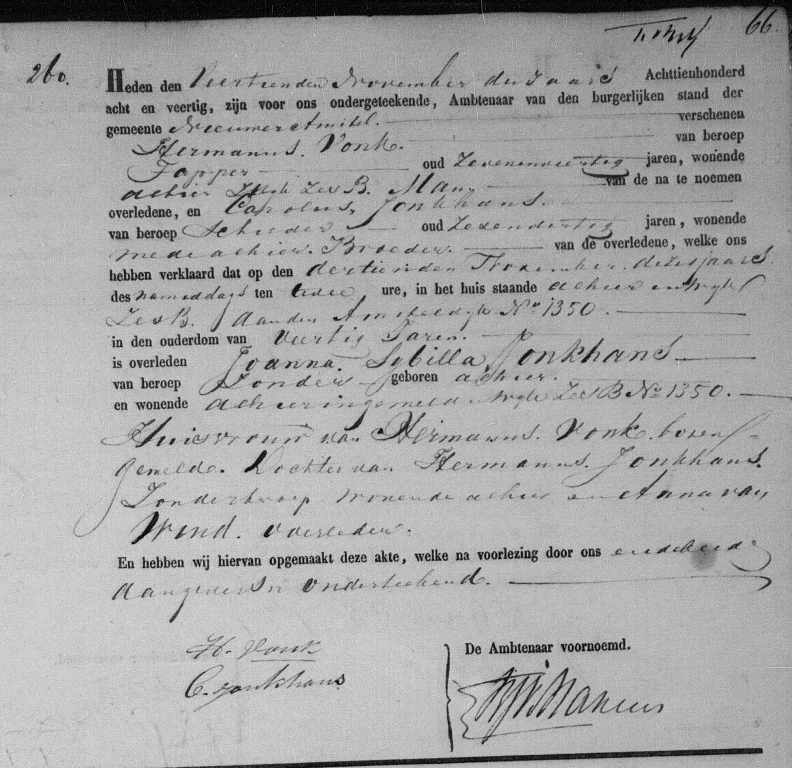 66.
260.
Heden den Veertienden November dezes jaars Achttienhonderd
acht en veertig, zijn voor ons ondergeteekende, Ambtenaar van den burgerlijken stand der
gemeente Nieuwer Amstel. verschenen
Hermanus. Vonk. van beroep
Tapper oud Zevenenveertig jaren, wonende
alhier Wijk Zes B. Man, van de na te noemen
overledene, en Carolus, Jonkhans.
van beroep Schilder oud Zesendertig jaren, wonende
mede alhier. Broeder. van de overledene, welke ons
hebben verklaard dat op den dertienden November. dezes jaars
des namiddags ten twee ure, in het huis staande alhier in wijk
Zes B. Aan den Amsteldijk No 1350.
in den ouderdom van Veertig Jaren.
is overleden Joanna. Sybilla. Jonkhans
van beroep Zonder geboren alhier.
en wonende alhier in gemeld Wijk Zes B No 1350.
Huisvrouw van Hermanus. Vonk. boven
gemeld. Dochter van Hermanus. Jonkhans.
Zonder beroep wonende alhier en Anna van
Wend. overleden.
En hebben wij hiervan opgemaakt deze akte, welke na voorlezing door ons en de beide
aangevers is onderteekend.
H. Vonk
C. Jonkhans
De Ambtenaar voornoemd.